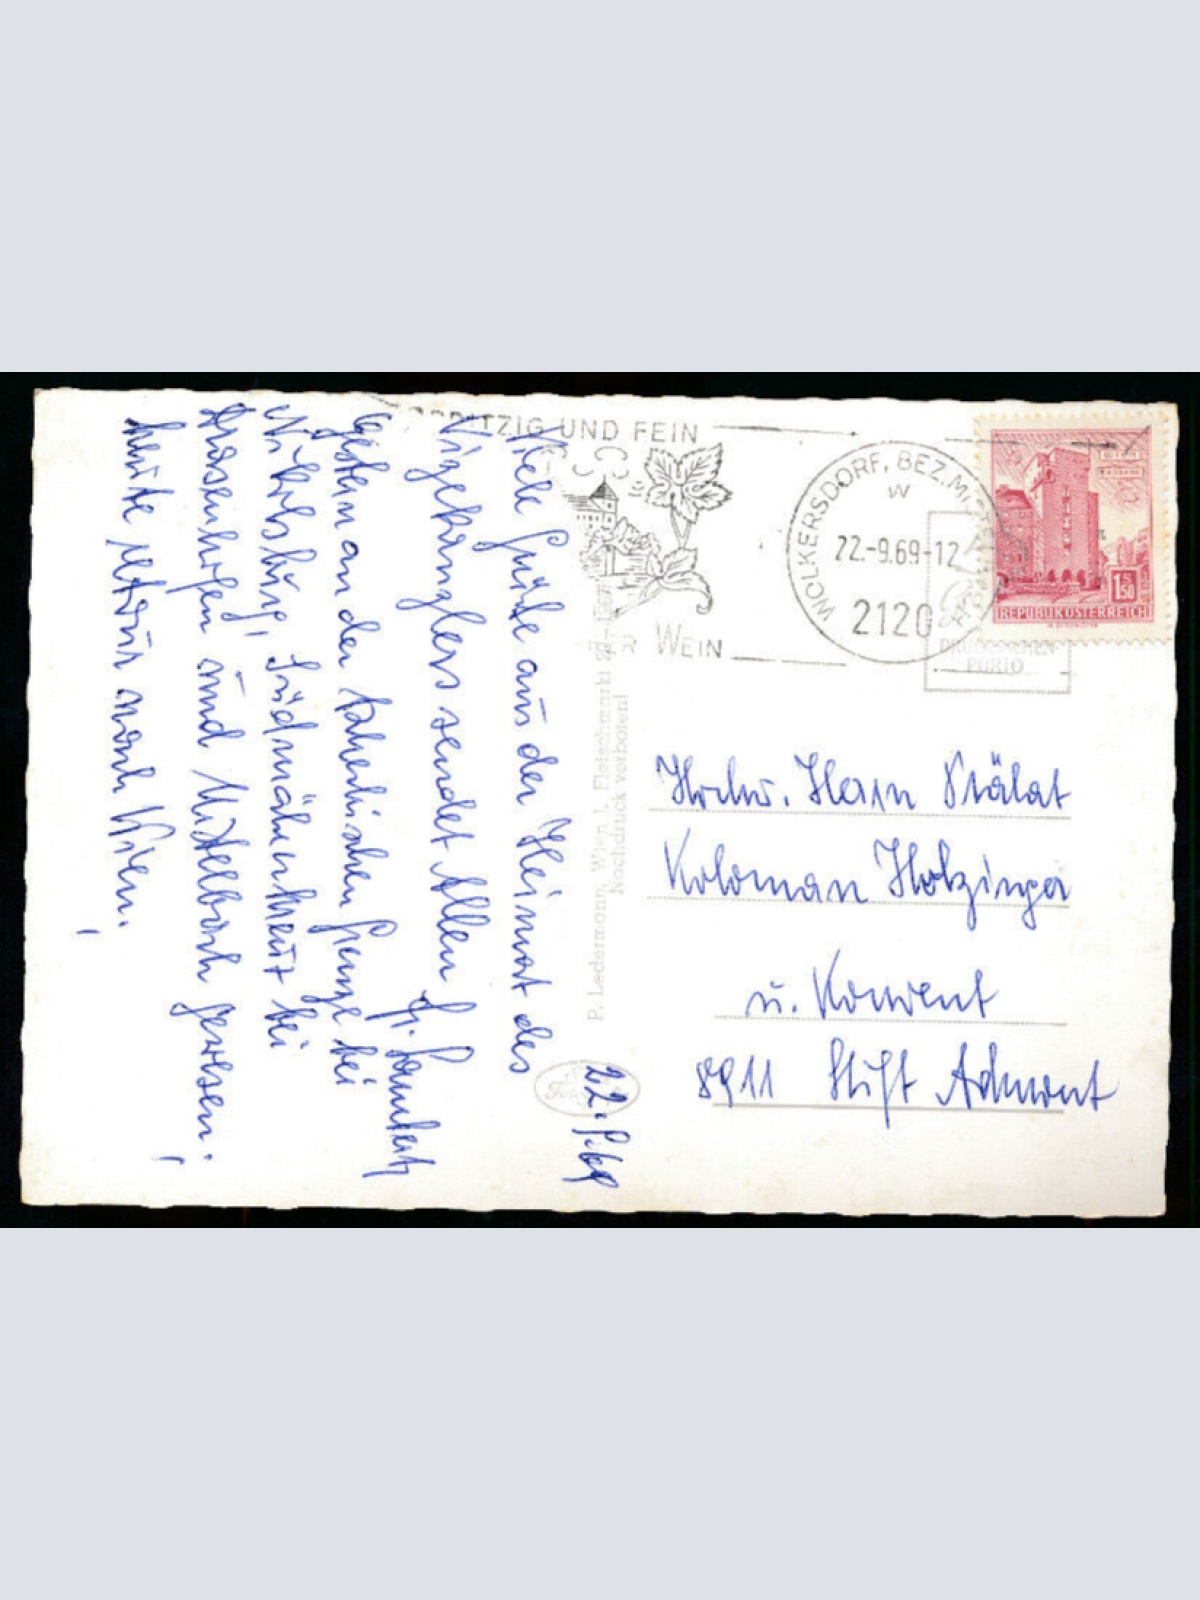 SPRITZIG UND FEIN
WEIN
WOLKERSDORF, BEZ. MISTELBACH
w
22.-9.69-12
2120
1 S 50
REPUBLIK ÖSTERREICH
DRUCKSACHEN-
PORTO
P. Ledermann, Wien I, Fleischmarkt
Nachdruck verboten!
22.9.69
Viele Grüße aus der Heimat des
Vizekanzlers sendet Allen
Gestern an der tschechischen Grenze bei
Nikolsburg, Südmähren bei
Drasenhofen und Mistelbach gewesen.
heute retour nach Wien.
Hochw. Herrn Prälat
Koloman Holzinger
u. Konvent
8911 Stift Admont